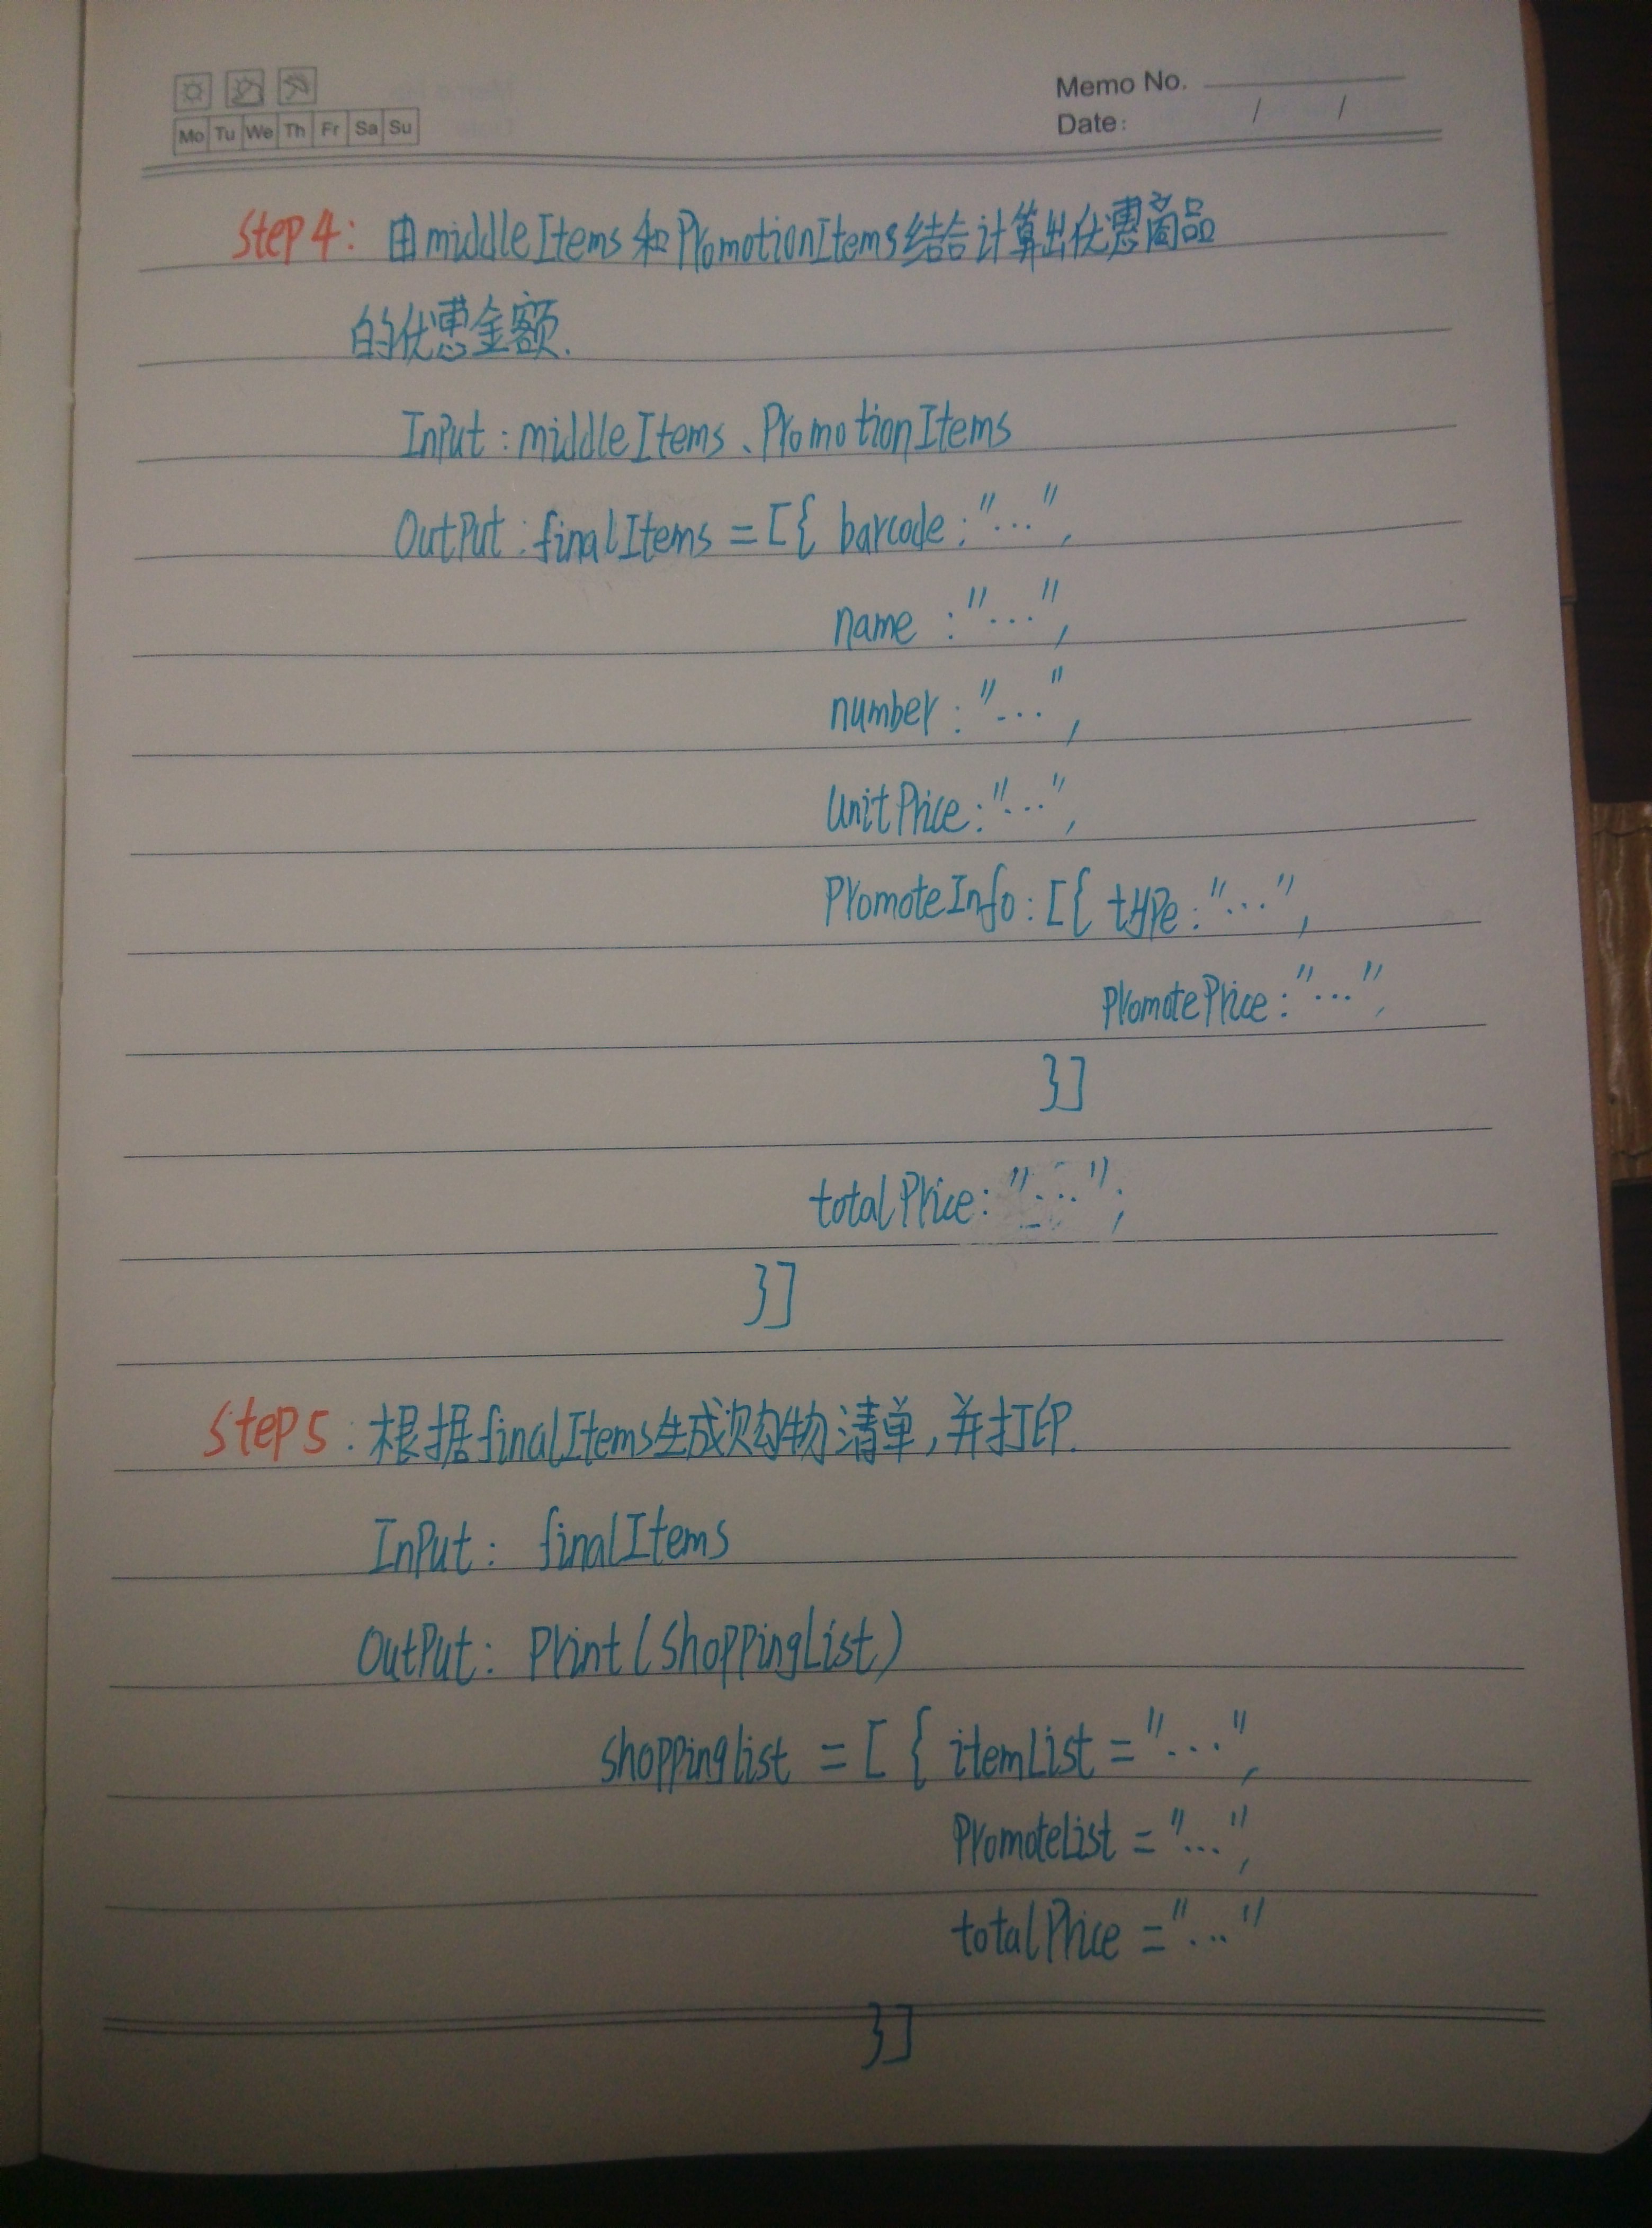 Mo Tu We Th Fr Sa Su
Memo No.
Date: / /
Step4: 由middleItems和PromotionItems结合计算出优惠商品
的优惠金额.
InPut: middleItems、PromotionItems
OutPut: finalItems = [{ barcode: "...",
name : "...",
number: "...",
UnitPrice: "...",
PromoteInfo: [{ tyPe: "...",
PromotePrice: "...",
}]
totalPrice: "...";
}]
Step5: 根据finalItems生成购物清单,并打印.
InPut: finalItems
OutPut: Print(ShoppingList)
shoppinglist = [ { itemList = "...",
PromoteList = "...",
totalPrice = "..."
}]